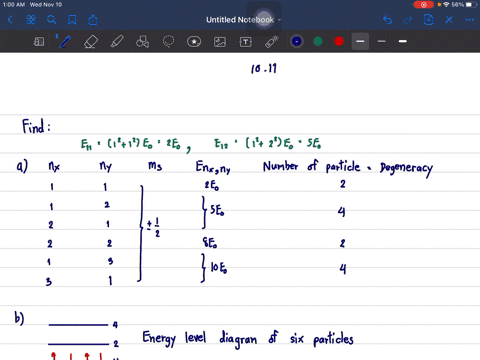 1:00 AM Wed Nov 10
56%
Untitled Notebook
10.11
Find:
E₁₁ = (1²+1²) E₀ = 2E₀ , E₁₂ = (1²+2²) E₀ = 5E₀
a) nx ny ms Enx,ny Number of particle = Degeneracy
1 1 2E₀ 2
1 2
5E₀ 4
2 1
± 1/2
2 2 8E₀ 2
1 3
10E₀ 4
3 1
b)
4
2 Energy level diagram of six particles